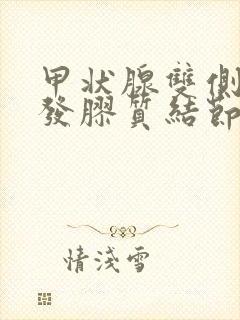 甲状腺雙側
發膠質結節
情淺雪